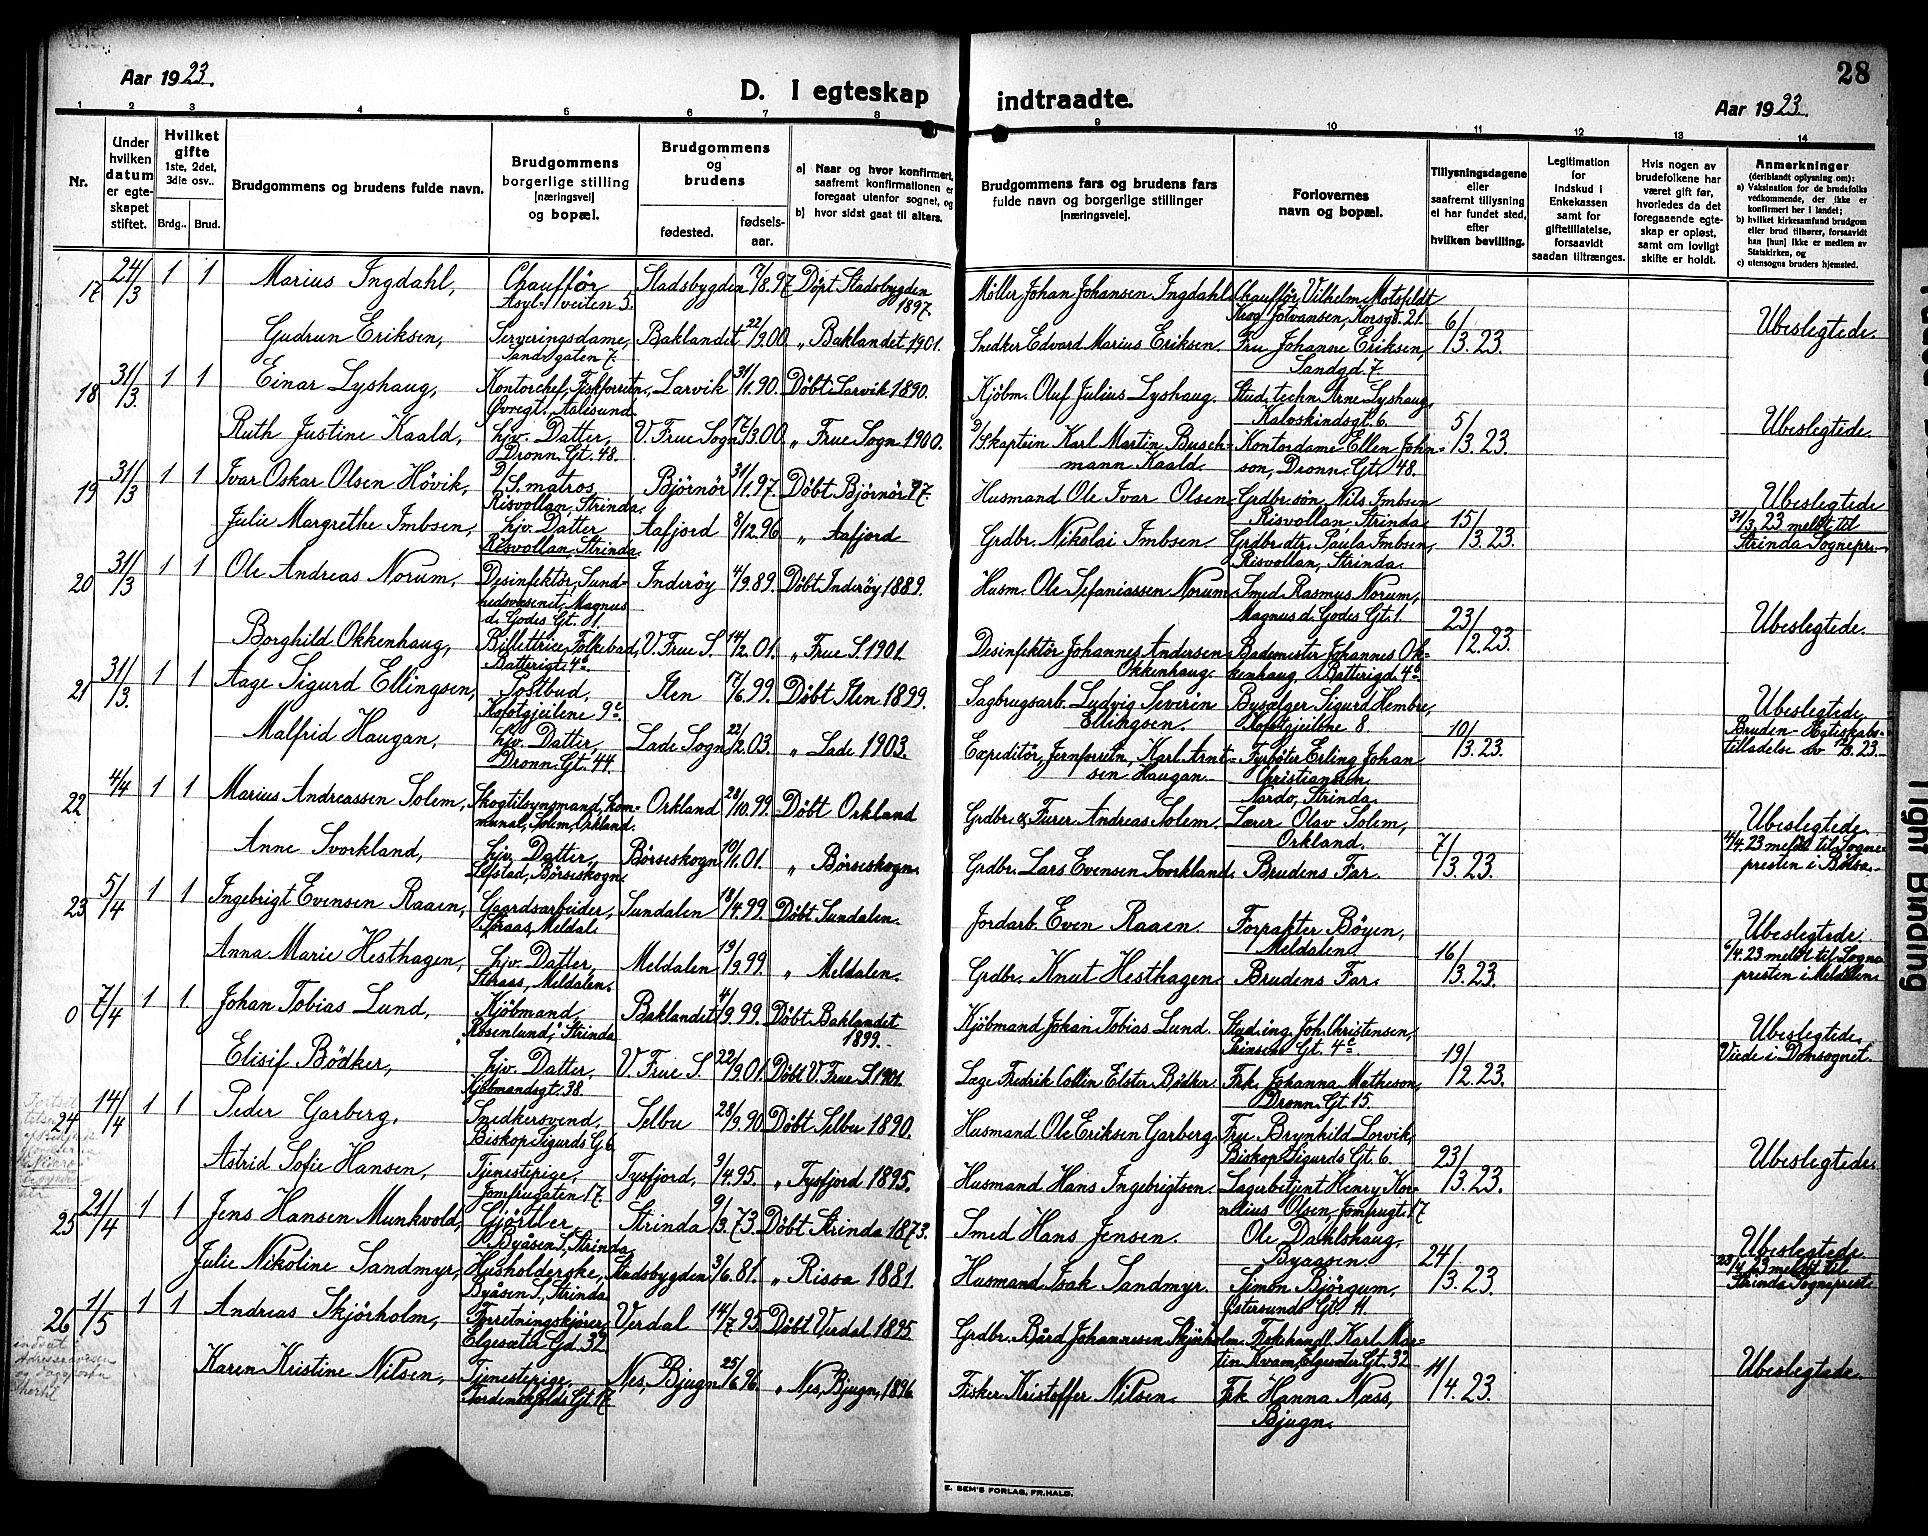 28
Aar 1923.
D. I egteskap indtraadte.
Aar 1923.
1 2 3 4 5 6 7 8 9 10 11 12 13 14
Nr.
Under hvilken datum er egteskapet stiftet.
Hvilket gifte 1ste, 2det, 3die osv..
Brdg.. Brud.
Brudgommens og brudens fulde navn.
Brudgommens borgerlige stilling [næringsvei] og bopæl.
Brudgommens og brudens
fødested. fødsels-aar.
a) Naar og hvor konfirmert, saafremt konfirmationen er foregaat utenfor sognet, og
b) hvor sidst gaat til alters.
Brudgommens fars og brudens fars fulde navn og borgerlige stillinger [næringsvei].
Forlovernes navn og bopæl.
Tillysningsdagene eller saafremt tillysning ei har fundet sted, efter hvilken bevilling.
Legitimation for indskud i Enkekassen samt for giftetillatelse, forsaavidt saadan tiltrænges.
Hvis nogen av brudefolkene har været gift før, hvorledes da det foregaaende egteskap er opløst, samt om lovligt skifte er holdt.
Anmerkninger (deriblandt oplysning om):
a) Vaksination for de brudefolks vedkommende, der ikke er konfirmert her i landet;
b) hvilket kirkesamfund brudgom eller brud tilhører, forsaavidt han [hun] ikke er medlem av Statskirken, og
c) utensogns bruders hjemsted.
17 24/3 1 1 Marius Ingdahl, Chauffør Asyl-veiten 5. Stadsbygden 17/8.97 Døpt Stadsbygden 1897. Møller Johan Johansen Ingdahl Chauffør, Vilhelm Motzfeldt Krog Johansen, Korsgt. 21.
Gudrun Eriksen, Serveringsdame, Sandgaten 7. Baklandet 22/9.00 „ Baklandet 1901. Snedker Edvard Marius Eriksen. Fru Johanne Eriksen, Sandgd. 7. 6/3.23. Ubeslegtede.
18 31/3 1 1 Einar Lyshaug, Kontorchef, Fiskforretn., Øvregt., Aalesund. Larvik 31/1.90. Døbt Larvik 1890. Kjøbm. Oluf Julius Lyshaug. Stud. techn. Arne Lyshaug, Kalvskindsgt. 6.
Ruth Justine Kaald, hjv. Datter, Dronn. Gt. 48. V. Frue Sogn 17/3.00. „ Frue Sogn 1900. D/Skaptein Karl Martin Buschmann Kaald. Kontordame Ellen Johnson, Dronn. Gt. 48. 5/3.23. Ubeslegtede.
19 31/3 1 1 Ivar Oskar Olsen Høvik, D/S. matros, Risvollan, Strinda, Bjørnør 31/1.97. Døbt Bjørnør 97. Husmand Ole Ivar Olsen, Grdbr. søn, Nils Imbsen Risvollan, Strinda
Julie Margrethe Imbsen, hjv. Datter Risvollan, Strinda. Aafjord 8/12.96 „ Aafjord Grdbr. Nikolai Imbsen. Grdbr. dtr. Paula Imbsen, Risvollan, Strinda. 15/3.23. Ubeslegtede 31/3.23 meldt til Strinda Sognepr.
20 31/3 1 1 Ole Andreas Norum, Desinfektør, Sundhedsvæsenit, Magnus d. Godes Gt. 1. Inderøy 4/9.89. Døbt Inderøy 1889. Husm. Ole Sefaniassen Norum Smed Rasmus Norum, Magnus d. Godes Gt. 1.
Borghild Okkenhaug, Billettrice, Folkebad, Batterigt. 4a. V. Frue S. 14/2.01. „ Frue S. 1901. Desinfektør Johannes Andersen Okkenhaug. Bademester Johannes Okkenhaug, Batterigd. 4a. 23/2.23. Ubeslegtede.
21 31/3. 1 1 Aage Sigurd Ellingsen, Postbud, Kofotgjeilene 9c. Ilen 17/6.99. Døbt Ilen 1899. Sagbrugsarb. Ludvig Severin Ellingsen. Bysælger Sigurd Hembre, Kofotgjeilene 8.
Malfrid Haugan, hjv. Datter, Dronn. Gt. 44. Lade Sogn 22/2.03. „ Lade 1903. Expeditør, Jernforretn., Karl Arntsen Haugan. Fyrbøter Erling Johan Christiansen Nardo, Strinda. 10/3.23. Ubeslegtede Bruden - Egteskabstilladelse
22 4/4 1 1 Marius Andreassen Solem, Skogtilsynsmand, kommunal, Solem, Orkland. Orkland 28/10.99. Døbt Orkland Grdbr. & Furer Andreas Solem. Lærer Olav Solem, Orkland.
Anne Svorkland, hjv. Datter, Børseskogn. Børseskogn 10/1.01. „ Børseskogn. Grdbr. Lars Evensen Svorkland. Brudens Far. 7/3.23. Ubeslegtede 4/4.23 meldt til Sognepresten i Børsa.
23 5/4 1 1 Ingebrigt Evensen Raaen, Gaardsarbeider, Meldal. Sundalen 18/4.99. Døbt Sundalen. Jordarb. Even Raaen. Forpakter Bøyen, Meldalen.
Anna Marie Hesthagen, hjv. Datter, Meldalen. Meldalen 19/9.99. „ Meldalen. Grdbr. Knut Hesthagen. Brudens Far. 16/3.23. Ubeslegtede. 6/4.23 meldt til Sognepresten i Meldalen
0 7/4 1 1. Johan Tobias Lund, Kjøbmand, „Rosenlund," Strinda Baklandet 4/9.99. Døbt Baklandet 1899. Kjøbmand Johan Tobias Lund. Stud. ing. Joh. Christensen, Prinsens Gt. 4c
Elisif Bødker, hjv. Datter, Kjøbmandsgt. 38. V. Frue S. 22/9.01. Døbt V. Frue S. 1901. Læge Fredrik Collin Elster Bødker. Frk. Johanna Matheson, Dronn. Gt. 15. 19/2.23. Ubeslegtede. Viede i Domsognet.
24 14/4 1 1 Peder Garberg, Smedkersvend, Biskop Sigurds G. 6. Selbu 28/9.90. Døbt Selbu 1890. Husmand Ole Eriksen Garberg. Fru Brynhild Lorvik, Biskop Sigurds Gt. 6.
Astrid Sofie Hansen, Tjenestepige, Jomfrugaten 17. Tysfjord, 9/4.95. „ Tysfjord 1895. Husmand Hans Ingebrigtsen. Lagerbetjent Henry Kornelius Olsen, Jomfrugt. 17 23/3.23. Ubeslegtede.
25 21/4 1 1 Jens Hansen Munkvold, Gjørtler, Byåsen S, Strinda Strinda 9/3.73. Døbt Strinda 1873. Smed Hans Jensen. Ole Dahlshaug, Byaasen.
Julie Nikoline Sandmyr, Husholderske, Byåsen S, Strinda Stadsbygden 3/6.81. „ Rissa 1881. Husmand Isak Sandmyr. Simon Bjørgum, Østersunds Gt. 11. 24/3.23. Ubeslegtede 23/4.23 meldt til Strinda Sogneprest
26 1/5 1 1 Andreas Skjørholm, Forretningskjører, Elgesæter Gd. 32. Verdal 14/7.95. Døbt Verdal 1895 Grdbr. Bård Johannesen Skjørholm. Fiskehandl. Karl Martin Kvam, Elgesæter Gt. 32
Karen Kristine Nilsen, Tjenestepige, Tordenskjolds Gt. 17. Nes, Bjugn 25/6.96. „ Nes, Bjugn, 1896. Fisker Kristoffer Nilsen. Frk Hanna Næss, Bjugn. 11/4.23. Ubeslegtede.
E. SEM'S FORLAG, FR.HALD.
Tight Binding